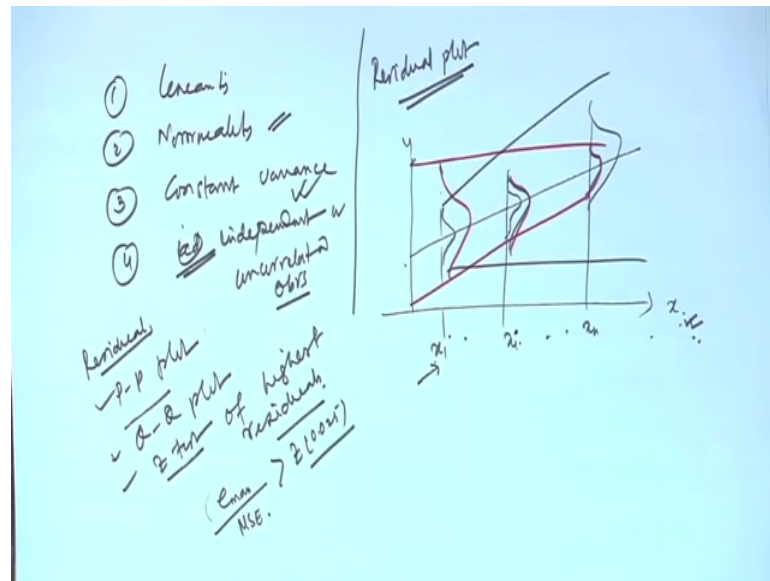 ① Linearity
② Normality
③ Constant variance
④ iid independent or
uncorrelated
obvs
Residuals
P-P plot
Q-Q plot
Z test of highest
residuals.
(emax / MSE. > Z(0.025)
Residual plot
y
x
x1 .. xi .. xn